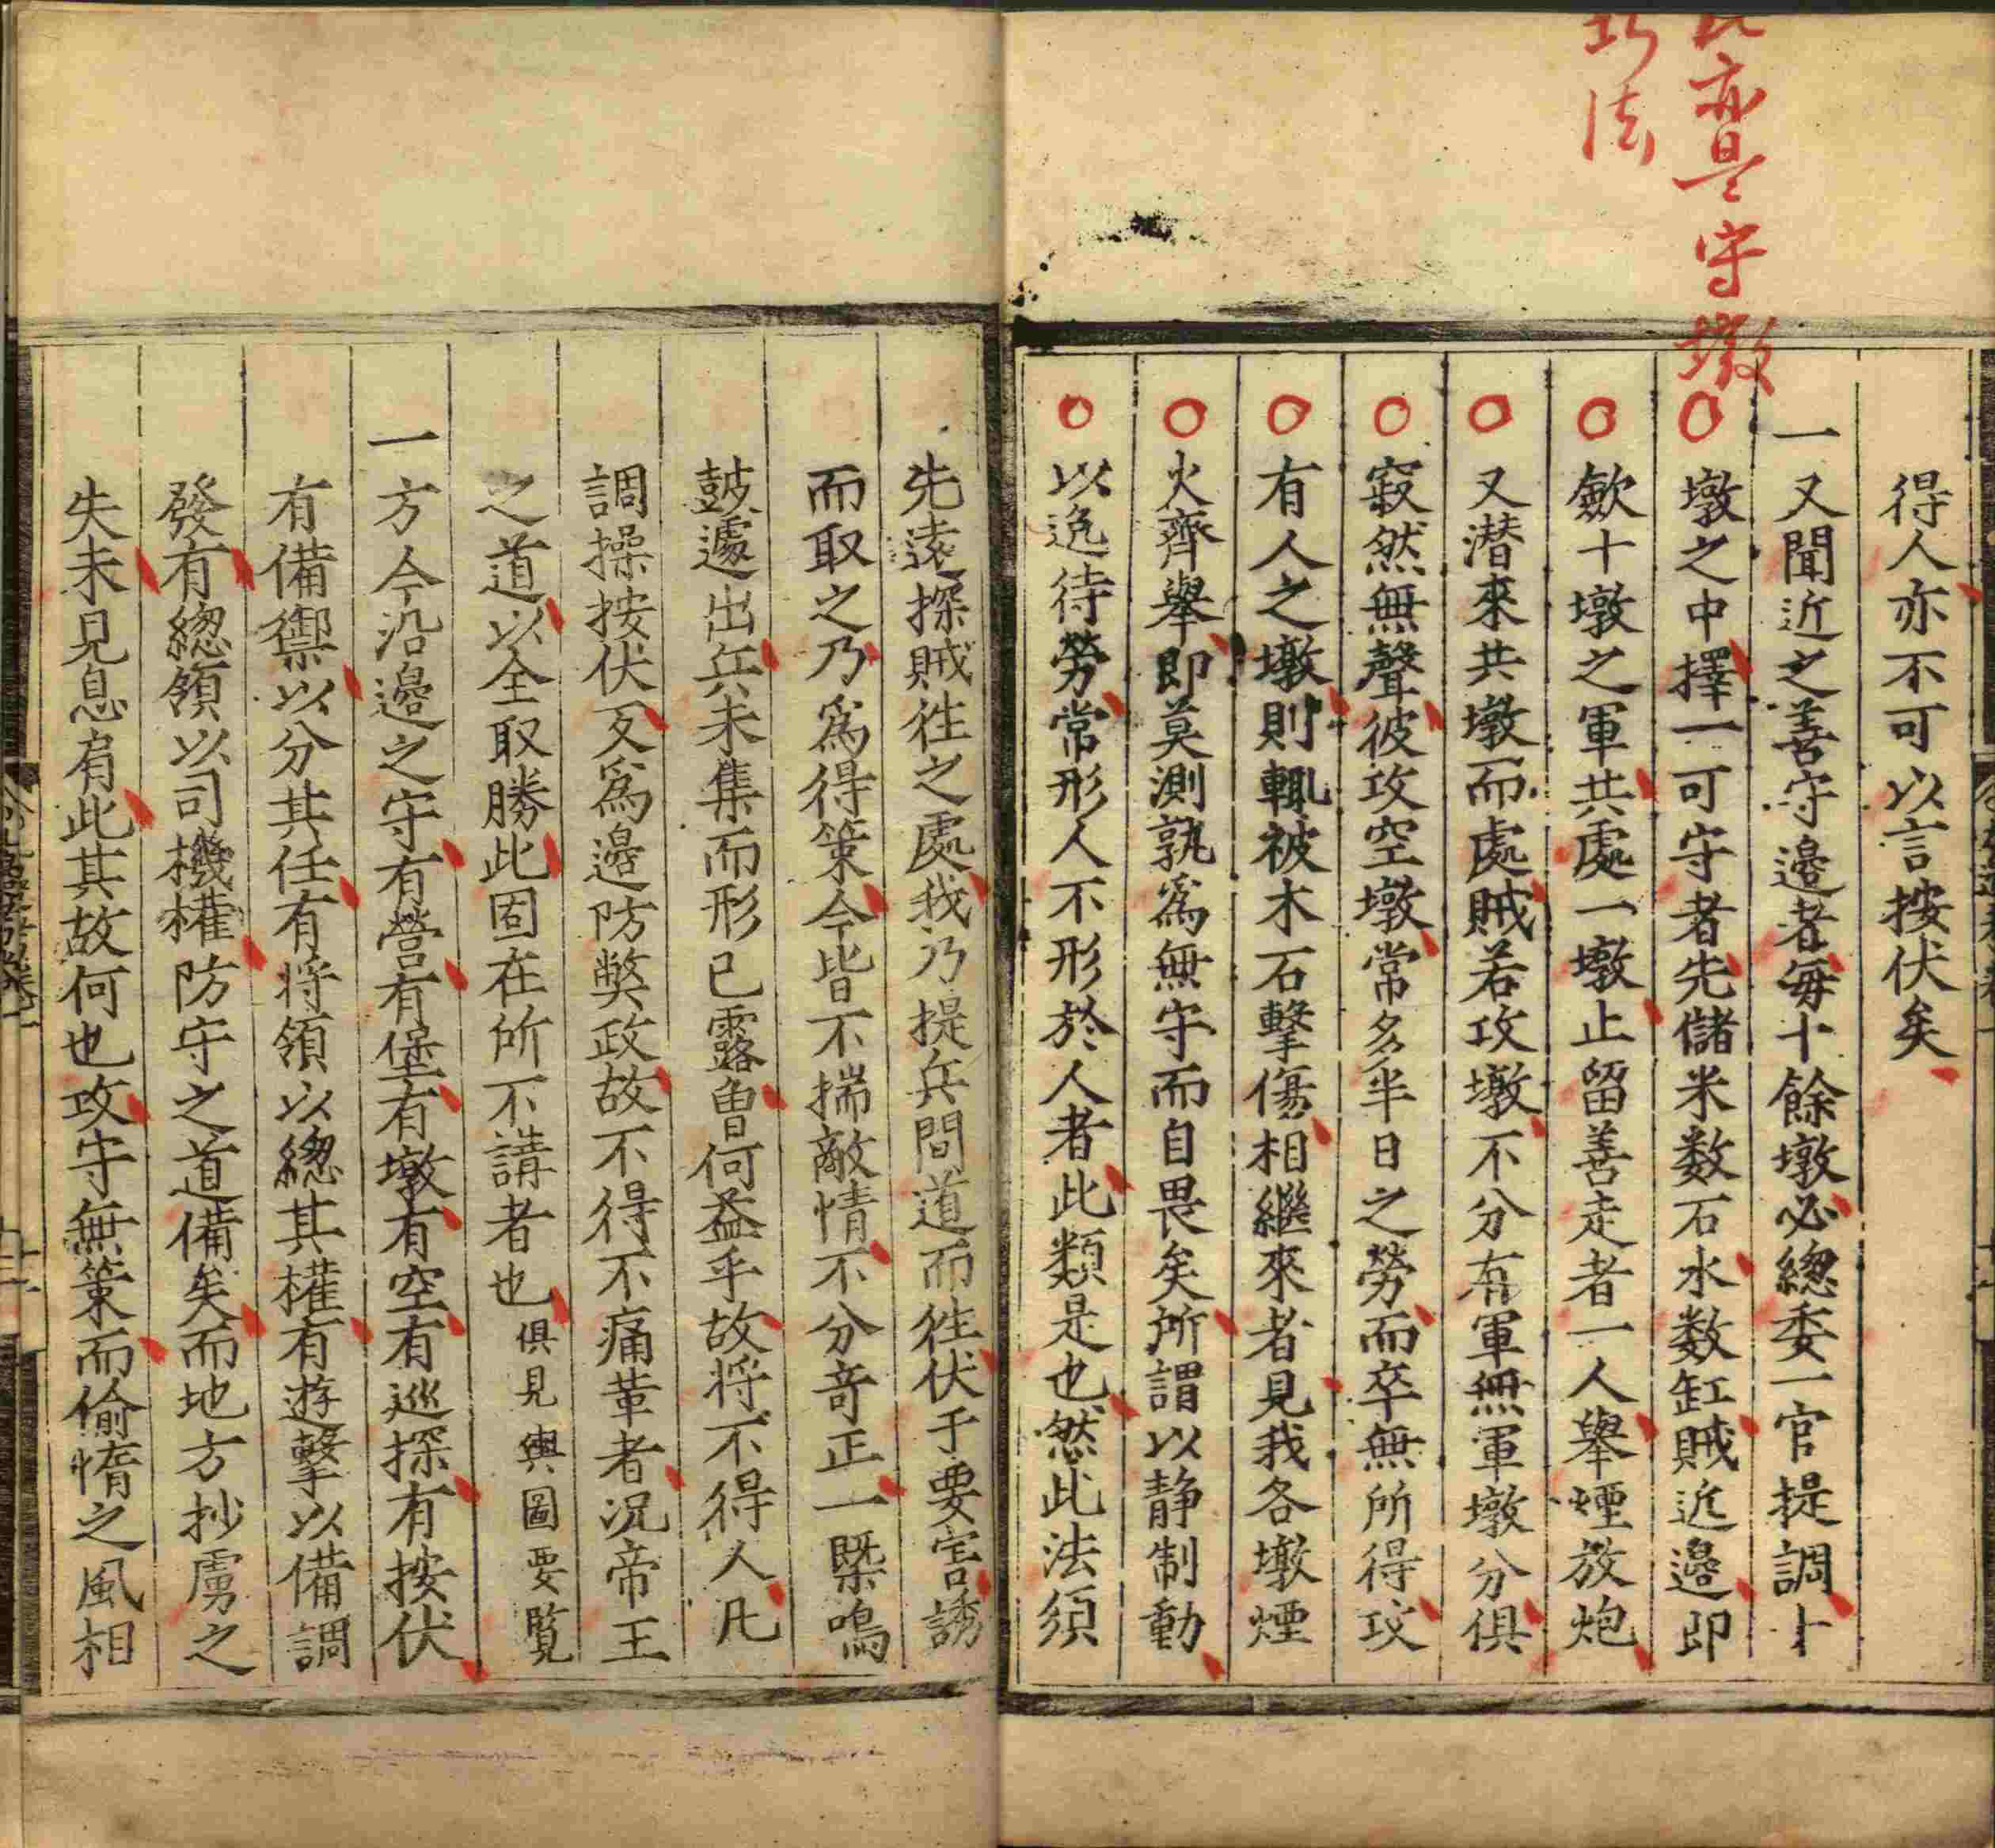 亦是守墩
巧法
得人亦不可以言按伏矣
一又聞近之善守邊者毎十餘墩必總委一官提調十
墩之中擇一可守者先儲米数石水数缸賊近邉即
歛十墩之軍共處一墩止留善走者一人舉煙放炮
又潜來共墩而處賊若攻墩不分有軍無軍墩分俱
寂然無聲彼攻空墩常多半日之勞而卒無所得攻
有人之墩則輒被木石擊傷相繼來者見我各墩煙
火齊舉即莫測孰爲無守而自畏矣所謂以静制動
以逸待勞常形人不形於人者此類是也然此法須
先遠探賊徃之處我乃提兵間道而徃伏于要害誘
而取之乃爲得策今皆不揣敵情不分竒正一槩鳴
鼓遽出兵未集而形已露曽何益乎故将不得人凡
調操按伏反爲邉防弊政故不得不痛革者况帝王
之道以全取勝此固在所不講者也俱見輿圖要覧
一方今沿邉之守有營有堡有墩有空有巡探有按伏
有備禦以分其任有将領以總其權有遊擊以備調
發有總領以司機權防守之道備矣而地方抄虜之
失未見息肩此其故何也攻守無策而偷惰之風相